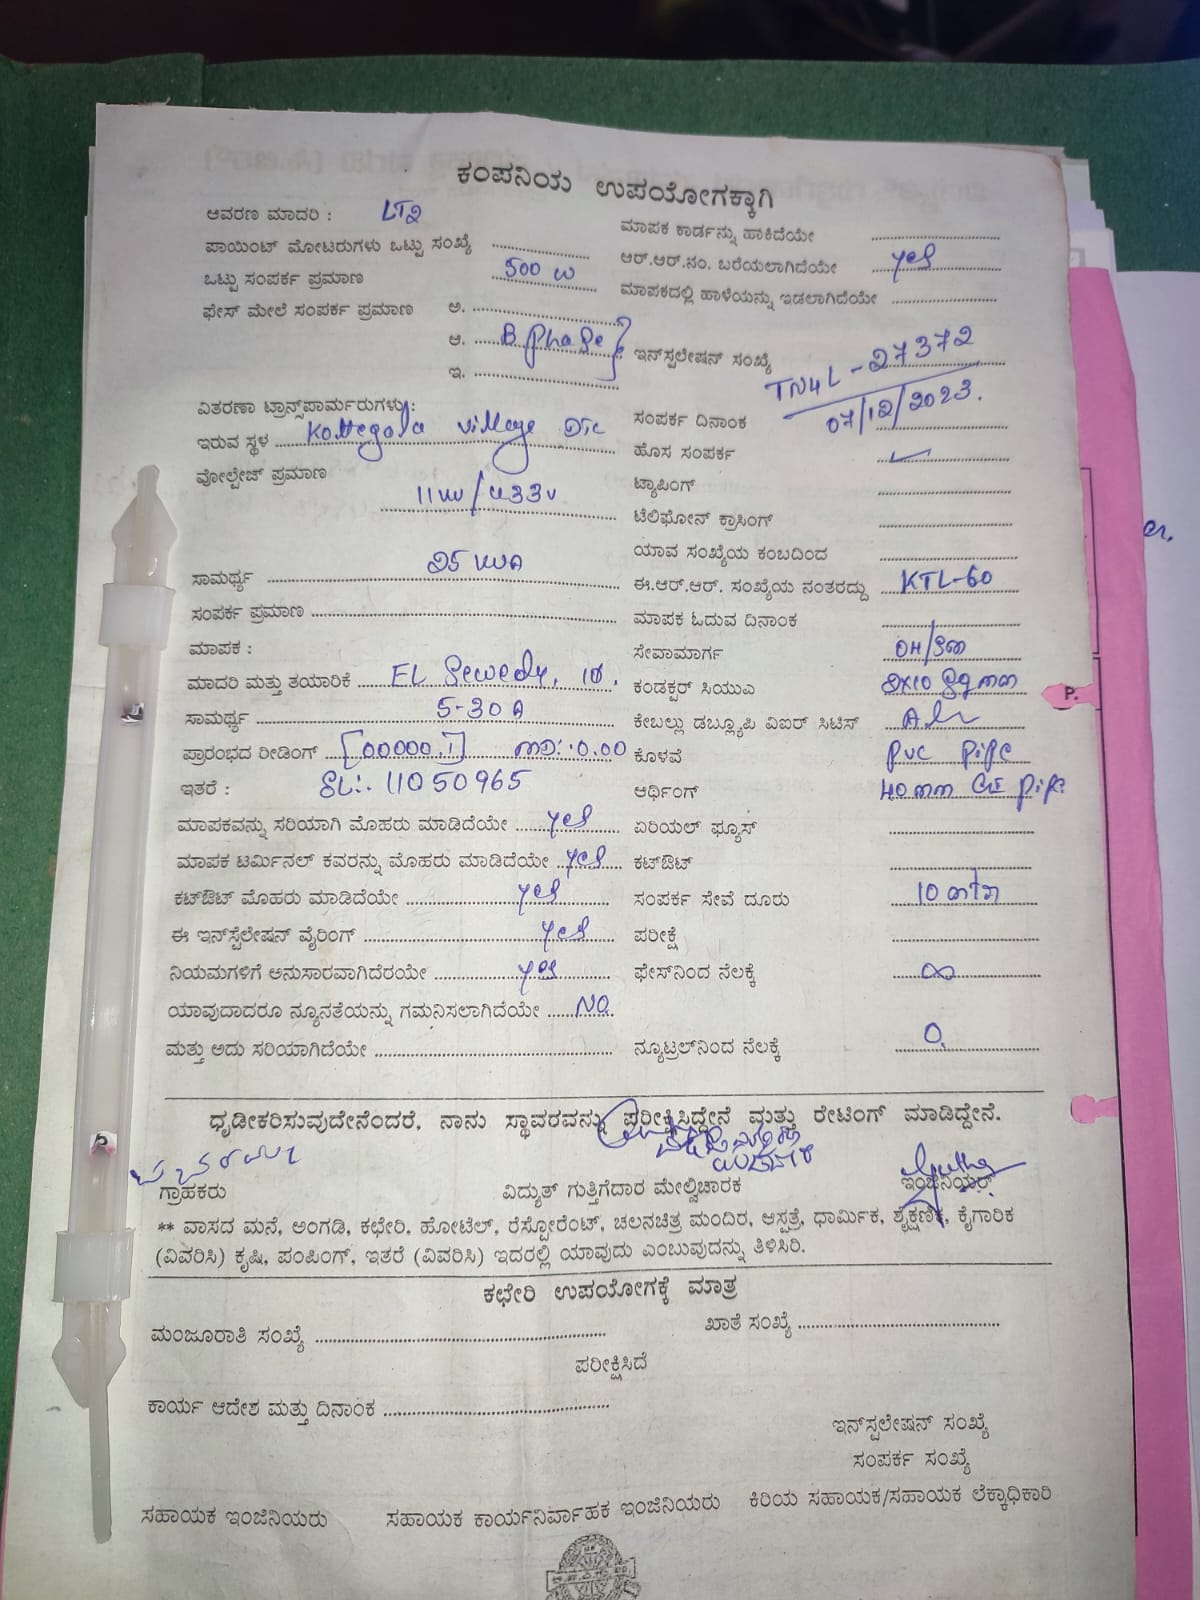 ಕಂಪನಿಯ ಉಪಯೋಗಕ್ಕಾಗಿ
ಆವರಣ ಮಾದರಿ : LT2
ಪಾಯಿಂಟ್ ಮೋಟರುಗಳು ಒಟ್ಟು ಸಂಖ್ಯೆ
ಒಟ್ಟು ಸಂಪರ್ಕ ಪ್ರಮಾಣ 500 W
ಫೇಸ್ ಮೇಲೆ ಸಂಪರ್ಕ ಪ್ರಮಾಣ ಅ.
ಆ. B phase
ಇ.
ವಿತರಣಾ ಟ್ರಾನ್ಸ್‌ಪಾರ್ಮರುಗಳು :
ಇರುವ ಸ್ಥಳ Kottegala village
ವೋಲ್ಟೇಜ್ ಪ್ರಮಾಣ
11 / 433V
ಸಾಮರ್ಥ್ಯ 25
ಸಂಪರ್ಕ ಪ್ರಮಾಣ
ಮಾಪಕ :
ಮಾದರಿ ಮತ್ತು ತಯಾರಿಕೆ EL Sewedy, 1Ø.
ಸಾಮರ್ಥ್ಯ 5-30A
ಪ್ರಾರಂಭದ ರೀಡಿಂಗ್ [00000.1] MD: 0.00
ಇತರೆ : SL: 11050965
ಮಾಪಕವನ್ನು ಸರಿಯಾಗಿ ಮೊಹರು ಮಾಡಿದೆಯೇ yes
ಮಾಪಕ ಟರ್ಮಿನಲ್ ಕವರನ್ನು ಮೊಹರು ಮಾಡಿದೆಯೇ yes
ಕಟ್‌ಔಟ್ ಮೊಹರು ಮಾಡಿದೆಯೇ yes
ಈ ಇನ್‌ಸ್ಟೆಲೇಷನ್ ವೈರಿಂಗ್ yes
ನಿಯಮಗಳಿಗೆ ಅನುಸಾರವಾಗಿದೆರಯೇ yes
ಯಾವುದಾದರೂ ನ್ಯೂನತೆಯನ್ನು ಗಮನಿಸಲಾಗಿದೆಯೇ NO
ಮತ್ತು ಅದು ಸರಿಯಾಗಿದೆಯೇ
ಮಾಪಕ ಕಾರ್ಡನ್ನು ಹಾಕಿದೆಯೇ
ಆರ್.ಆರ್.ನಂ. ಬರೆಯಲಾಗಿದೆಯೇ yes
ಮಾಪಕದಲ್ಲಿ ಹಾಳೆಯನ್ನು ಇಡಲಾಗಿದೆಯೇ
ಇನ್‌ಸ್ಟಲೇಷನ್ ಸಂಖ್ಯೆ TN4L-27372
ಸಂಪರ್ಕ ದಿನಾಂಕ 07/12/2023.
ಹೊಸ ಸಂಪರ್ಕ ✓
ಟ್ಯಾಪಿಂಗ್
ಟೆಲಿಫೋನ್ ಕ್ರಾಸಿಂಗ್
ಯಾವ ಸಂಖ್ಯೆಯ ಕಂಬದಿಂದ
ಈ.ಆರ್.ಆರ್. ಸಂಖ್ಯೆಯ ನಂತರದ್ದು KTL-60
ಮಾಪಕ ಓದುವ ದಿನಾಂಕ
ಸೇವಾಮಾರ್ಗ OH/
ಕಂಡಕ್ಟರ್ ಸಿಯುಎ 2X10 Sqmm
ಕೇಬಲ್ಲು ಡಬ್ಲ್ಯೂಪಿ ವಿಐರ್ ಸಿಟಿಸ್
ಕೊಳವೆ PVC pipe
ಆರ್ಥಿಂಗ್ 40mm GI pipe
ಏರಿಯಲ್ ಫ್ಯೂಸ್
ಕಟ್‌ಔಟ್
ಸಂಪರ್ಕ ಸೇವೆ ದೂರು 10
ಪರೀಕ್ಷೆ
ಫೇಸ್‌ನಿಂದ ನೆಲಕ್ಕೆ ∞
ನ್ಯೂಟ್ರಲ್‌ನಿಂದ ನೆಲಕ್ಕೆ 0.
ಧೃಡೀಕರಿಸುವುದೇನೆಂದರೆ, ನಾನು ಸ್ಥಾವರವನ್ನು ಪರೀಕ್ಷಿಸಿದ್ದೇನೆ ಮತ್ತು ರೇಟಿಂಗ್ ಮಾಡಿದ್ದೇನೆ.
ಗ್ರಾಹಕರು ವಿದ್ಯುತ್ ಗುತ್ತಿಗೆದಾರ ಮೇಲ್ವಿಚಾರಕ ಇಂಜಿನಿಯರ್
** ವಾಸದ ಮನೆ, ಅಂಗಡಿ, ಕಛೇರಿ, ಹೋಟೆಲ್, ರೆಸ್ಟೋರೆಂಟ್, ಚಲನಚಿತ್ರ ಮಂದಿರ, ಆಸ್ಪತ್ರೆ, ಧಾರ್ಮಿಕ, ಶೈಕ್ಷಣಿಕ, ಕೈಗಾರಿಕ
(ವಿವರಿಸಿ) ಕೃಷಿ, ಪಂಪಿಂಗ್, ಇತರೆ (ವಿವರಿಸಿ) ಇದರಲ್ಲಿ ಯಾವುದು ಎಂಬುವುದನ್ನು ತಿಳಿಸಿರಿ.
ಕಛೇರಿ ಉಪಯೋಗಕ್ಕೆ ಮಾತ್ರ
ಮಂಜೂರಾತಿ ಸಂಖ್ಯೆ ಖಾತೆ ಸಂಖ್ಯೆ
ಪರೀಕ್ಷಿಸಿದೆ
ಕಾರ್ಯ ಆದೇಶ ಮತ್ತು ದಿನಾಂಕ
ಇನ್‌ಸ್ಟಲೇಷನ್ ಸಂಖ್ಯೆ
ಸಂಪರ್ಕ ಸಂಖ್ಯೆ
ಸಹಾಯಕ ಇಂಜಿನಿಯರು ಸಹಾಯಕ ಕಾರ್ಯನಿರ್ವಾಹಕ ಇಂಜಿನಿಯರು ಕಿರಿಯ ಸಹಾಯಕ/ಸಹಾಯಕ ಲೆಕ್ಕಾಧಿಕಾರಿ
P.